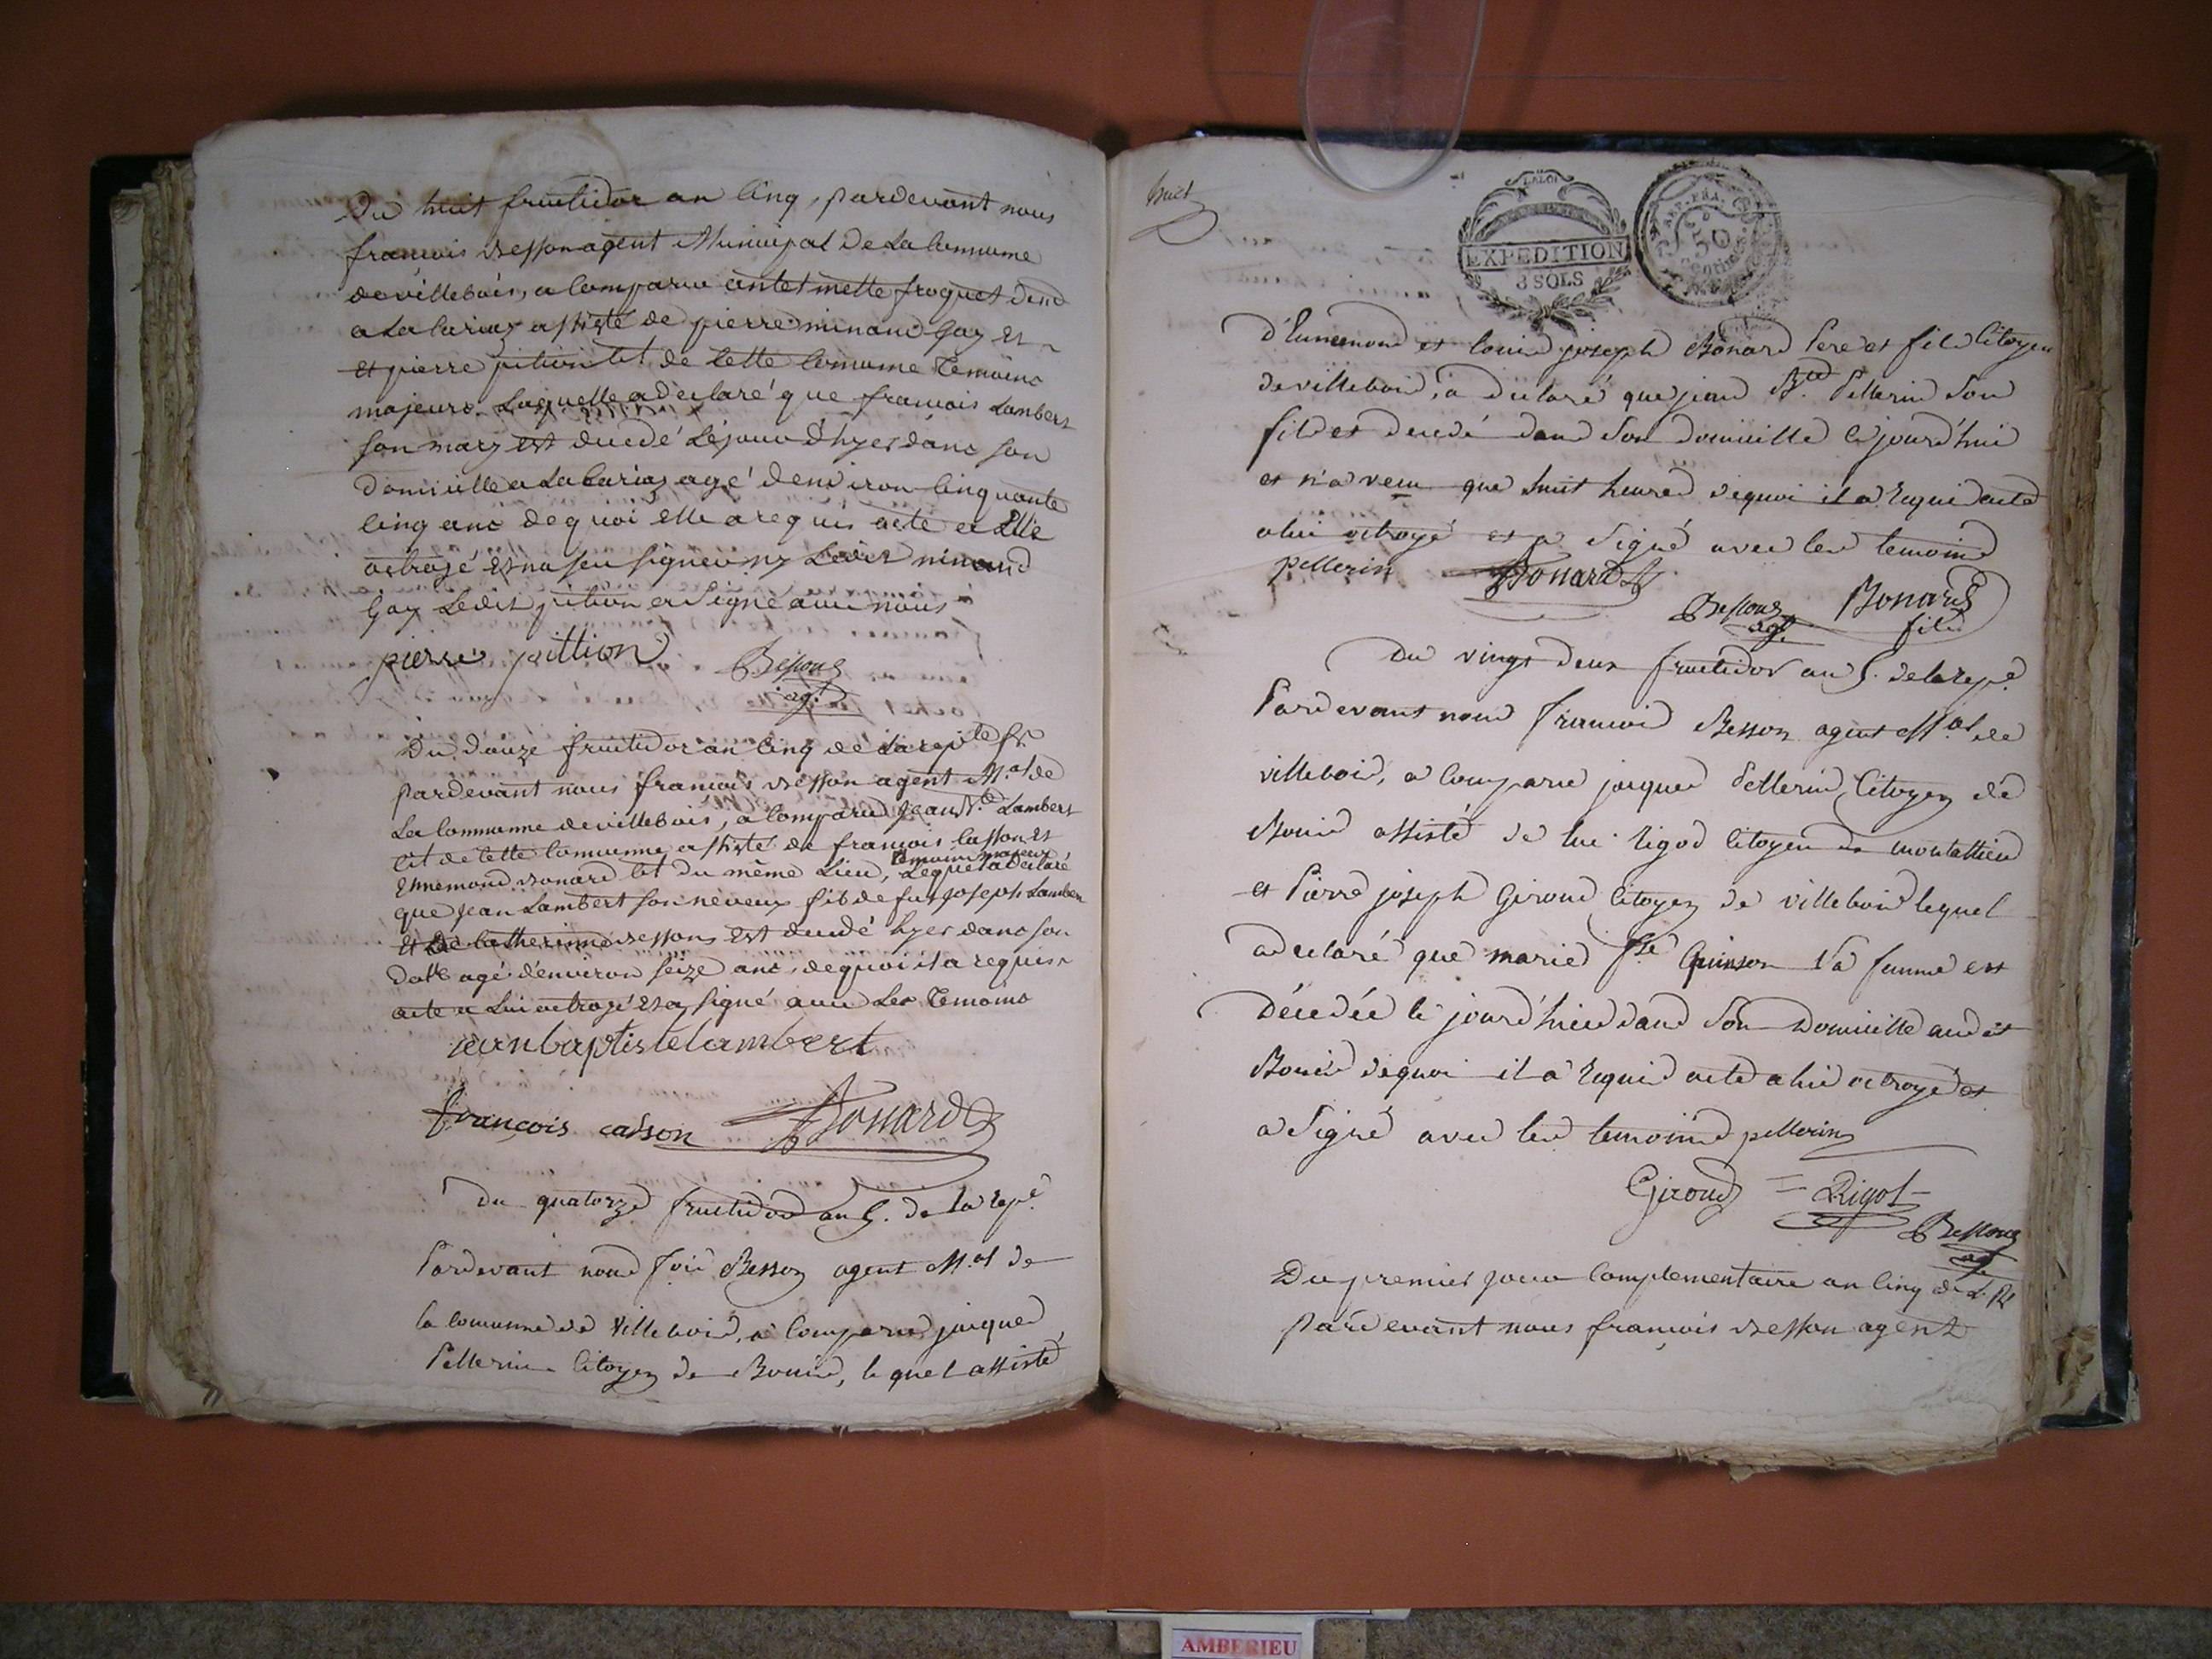 Du huit fructidor an cinq, pardevant nous
francois Besson agent Municipal De La Commune
de villebois, a Comparu froquet
a La assisté de pierre minand Gay et
et pierre pition cit de Cette Commune Temoins
majeurs Laquelle a declaré que francois Lambert
son mary est decedé Lejour d'hyer dans son
Domicille a La age' denviron Cinquante
Cinq ans de quoi elle a requis acte a Elle
octroyé et na seu signer ny Ledit minand
Gay Ledit pition a Signé avec nous
pierre pittion
Besson
agt
Du douze fructidor an Cinq de La repte fr
pardevant nous francois Besson agent M.al de
La Commune de villebois, a Comparu Jean Bte Lambert
Cit de Cette Commune assisté de francois Casson et
Temoins majeurs
Ennemond Bonard Cit Du même Lieu, Lequel a declaré
que Jean Lambert son neveux fils de fut Joseph Lambert
et de Catherinne Bessons est decedé hyer dans son
Dolle agé d'environ seize ans, de quoi il a requis
acte a Lui octroyé et a signé avec Les Temoins
jean baptiste lambert
françois casson Bonard
Du quatorze fructidor an 5. de la rep.e
Pardevant nous fois Besson agent M.al de
la commune de Villebois, a Comparu jacques
Pellerin Citoyen de Bouis, le quel assisté
huit
LA LOI
EXPÉDITION
3 SOLS
REP. FRA.
50
Centimes
d'Ennemond et Louis joseph Bonard Pere et fils Citoyen
de villebois, a declaré que jean Bte Pellerin Son
fils est decedé dans Son Domicille cejourd'hui
et n'a vecu que huit heures dequoi il a requi acte
a lui octroyé et a Signé avec les temoins
pellerin Bonard
Besson Bonard
agt. fils
Du vingt deux fructidor an 5. de la rep.e
Pardevant nous francois Besson agent M.al de
villebois, a Comparu jacques Pellerin, Citoyen de
Bouis assisté de luc rigod Citoyen de montallieu
et Pierre joseph Giroud Citoyen de villebois lequel
a declaré que marie fse Quinson Sa femme est
décedée ce jourd'hui dans Son Domicille audit
Bouis dequoi il a requis acte a lui octroyé et
a Signé avec les temoins pellerin
Giroud = Rigot -
Besson
agt
Du premier jour Complementaire an Cinq de L. R
pardevant nous francois Besson agent
AMBERIEU